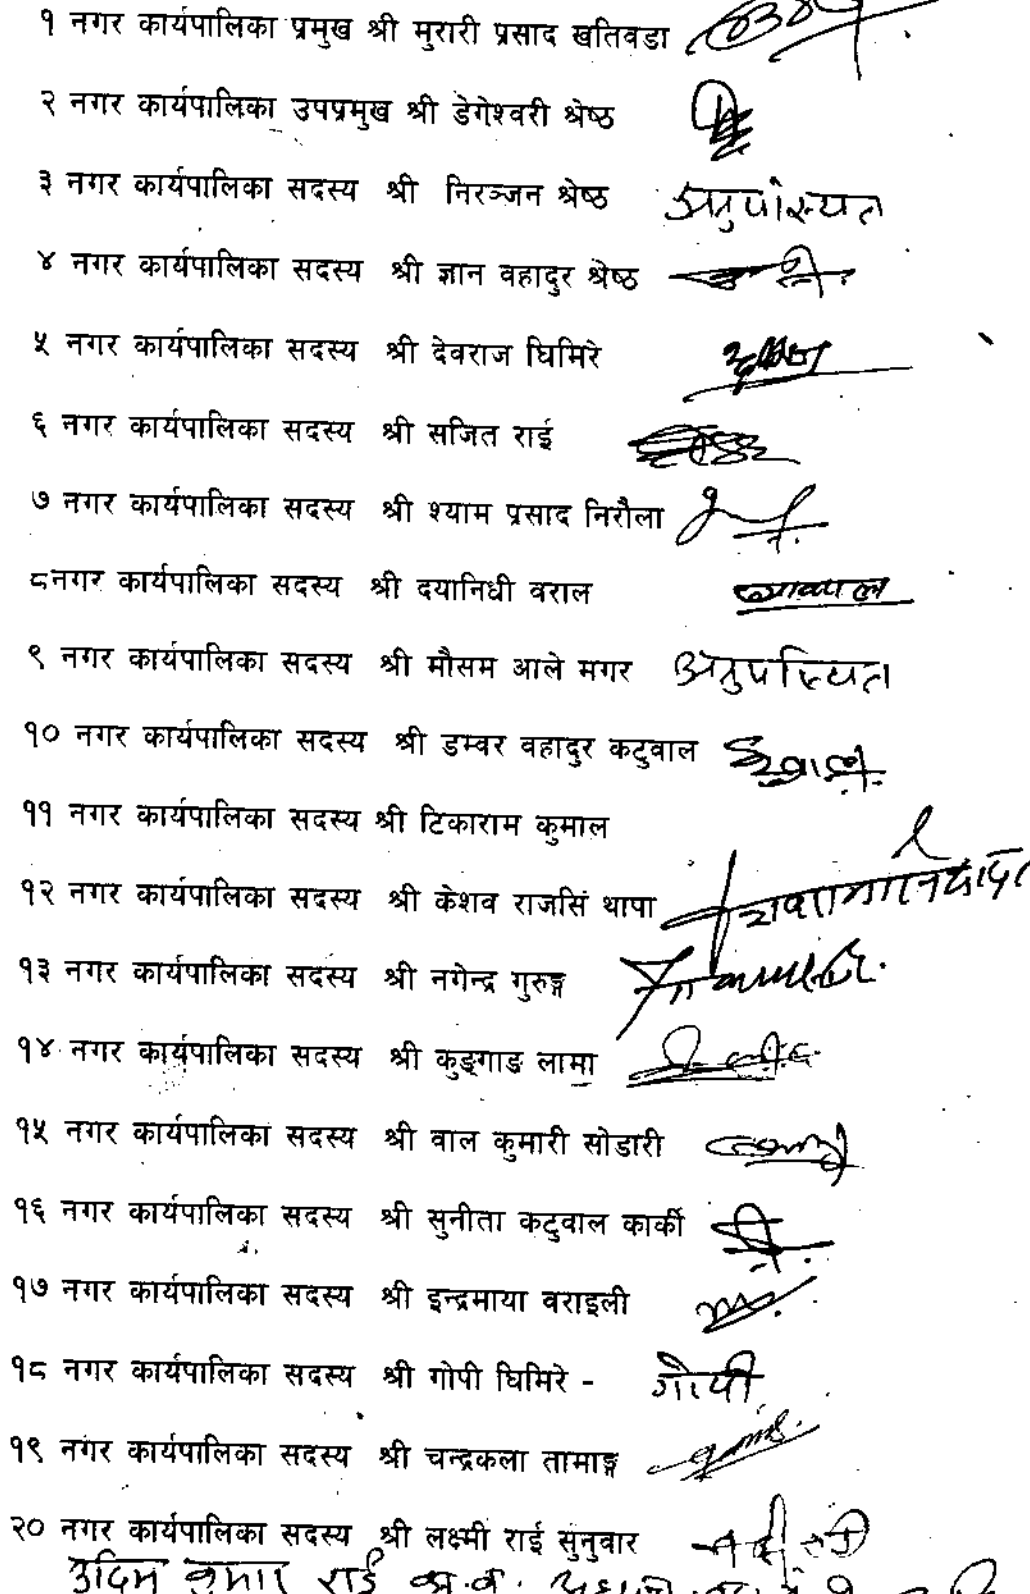 १ नगर कार्यपालिका प्रमुख श्री मुरारी प्रसाद खतिवडा
२ नगर कार्यपालिका उपप्रमुख श्री डेगेश्वरी श्रेष्ठ
३ नगर कार्यपालिका सदस्य श्री निरञ्जन श्रेष्ठ अनुपस्थित
४ नगर कार्यपालिका सदस्य श्री ज्ञान वहादुर श्रेष्ठ
५ नगर कार्यपालिका सदस्य श्री देवराज घिमिरे
६ नगर कार्यपालिका सदस्य श्री सजित राई
७ नगर कार्यपालिका सदस्य श्री श्याम प्रसाद निरौला
८नगर कार्यपालिका सदस्य श्री दयानिधी वराल
९ नगर कार्यपालिका सदस्य श्री मौसम आले मगर अनुपस्थित
१० नगर कार्यपालिका सदस्य श्री डम्वर वहादुर कटुवाल
११ नगर कार्यपालिका सदस्य श्री टिकाराम कुमाल
१२ नगर कार्यपालिका सदस्य श्री केशव राजसिं थापा
१३ नगर कार्यपालिका सदस्य श्री नगेन्द्र गुरुङ्ग
१४ नगर कार्यपालिका सदस्य श्री कुङ्गाङ लामा
१५ नगर कार्यपालिका सदस्य श्री वाल कुमारी सोडारी
१६ नगर कार्यपालिका सदस्य श्री सुनीता कटुवाल कार्की
१७ नगर कार्यपालिका सदस्य श्री इन्द्रमाया वराइली
१८ नगर कार्यपालिका सदस्य श्री गोपी घिमिरे - गोपी
१९ नगर कार्यपालिका सदस्य श्री चन्द्रकला तामाङ्ग
२० नगर कार्यपालिका सदस्य श्री लक्ष्मी राई सुनुवार
उदिम कुमार राई